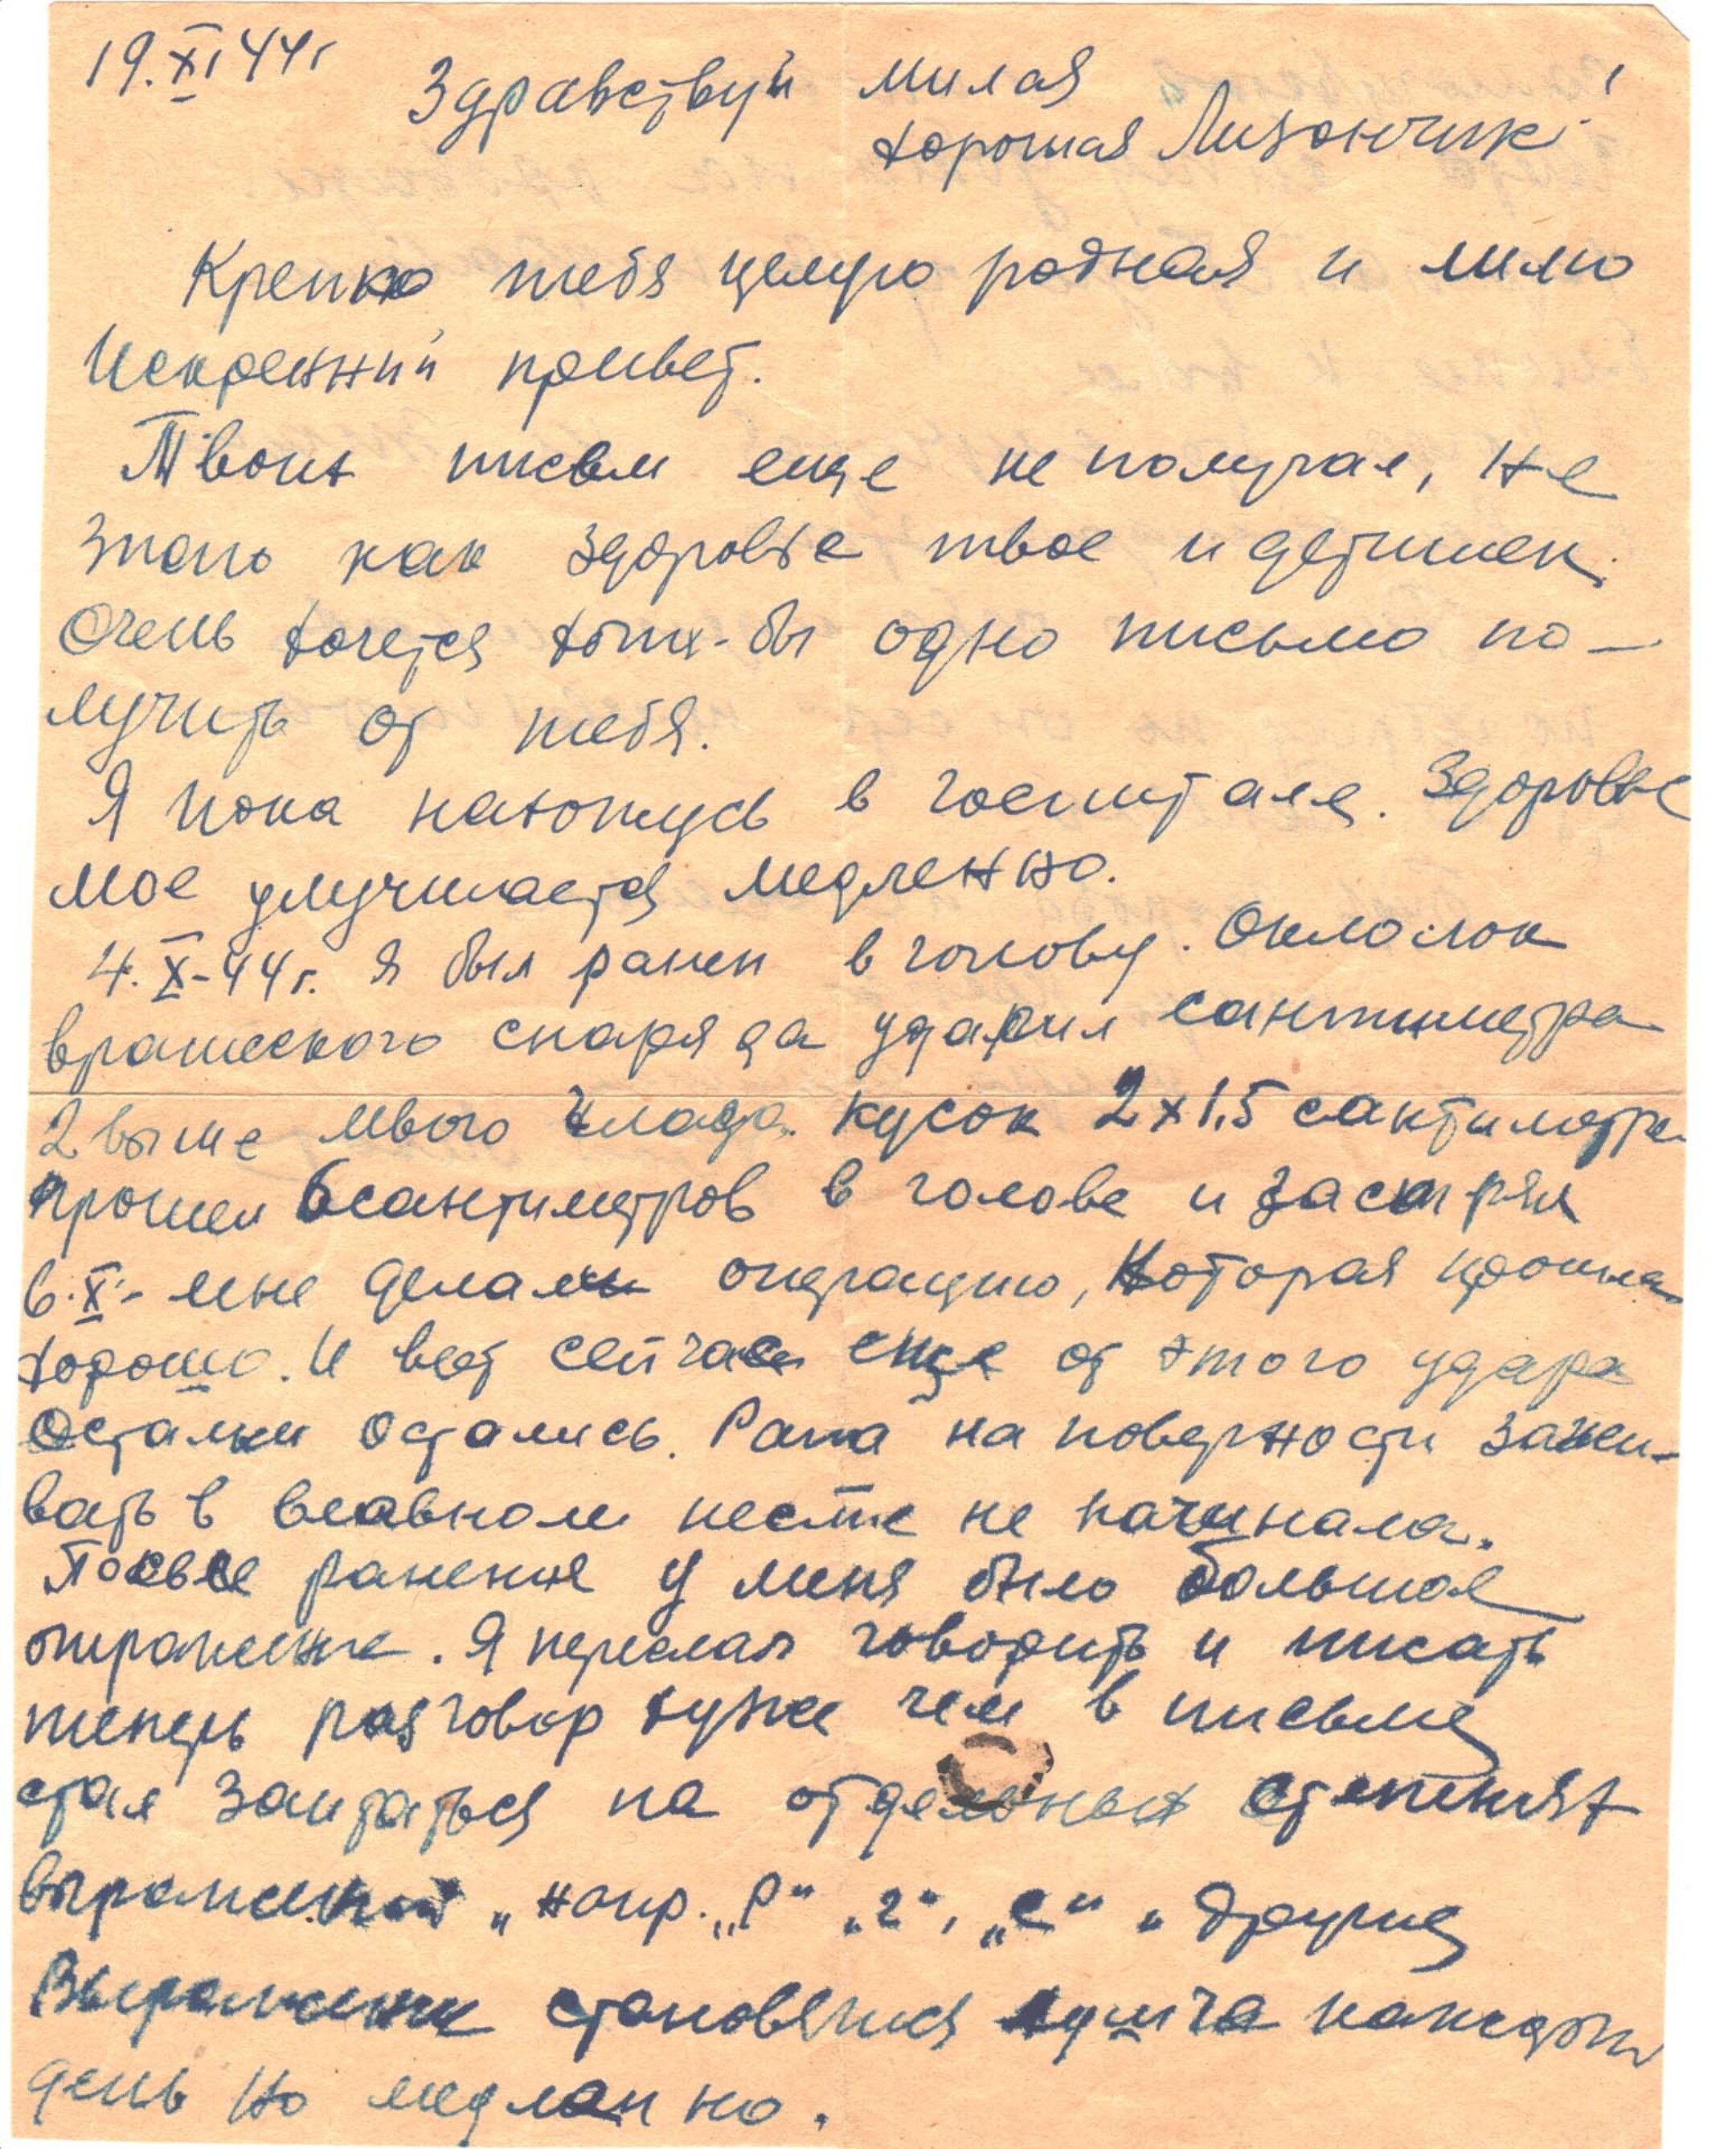 19.XI 44г
Здравствуй милая
хорошая Лизончик!
Крепко тебя целую родная и шлю
Искренний привет.
Твоих писем еще не получал, не
знаю как здоровье твое и детишек.
Очень хочется хотя-бы одно письмо по-
лучить от тебя.
Я пока нахожусь в госпитале. Здоровье
мое улучшается медленно.
4.X-44г. я был ранен в голову. Околок
вражеского снаряда ударил сантиметра
2 выше левого глаза. Кусок 2х1,5 сантиметра
прошел 6 сантиметров в голове и застрял
6.X- мне делали операцию, которая прошла
хорошо. И вот сейчас еще от этого удара
остатки остались. Рана на поверхности зажи-
вать в главном месте не начинала.
После ранения у меня было большое
отражение. Я перестал говорить и писать
теперь разговор хуже чем в письме
стал заитаться на отдельных степенях
выражений „напр. „р“ „г“, „с“ „ другие
Выражение становятся лушча каждый
день но медленно.